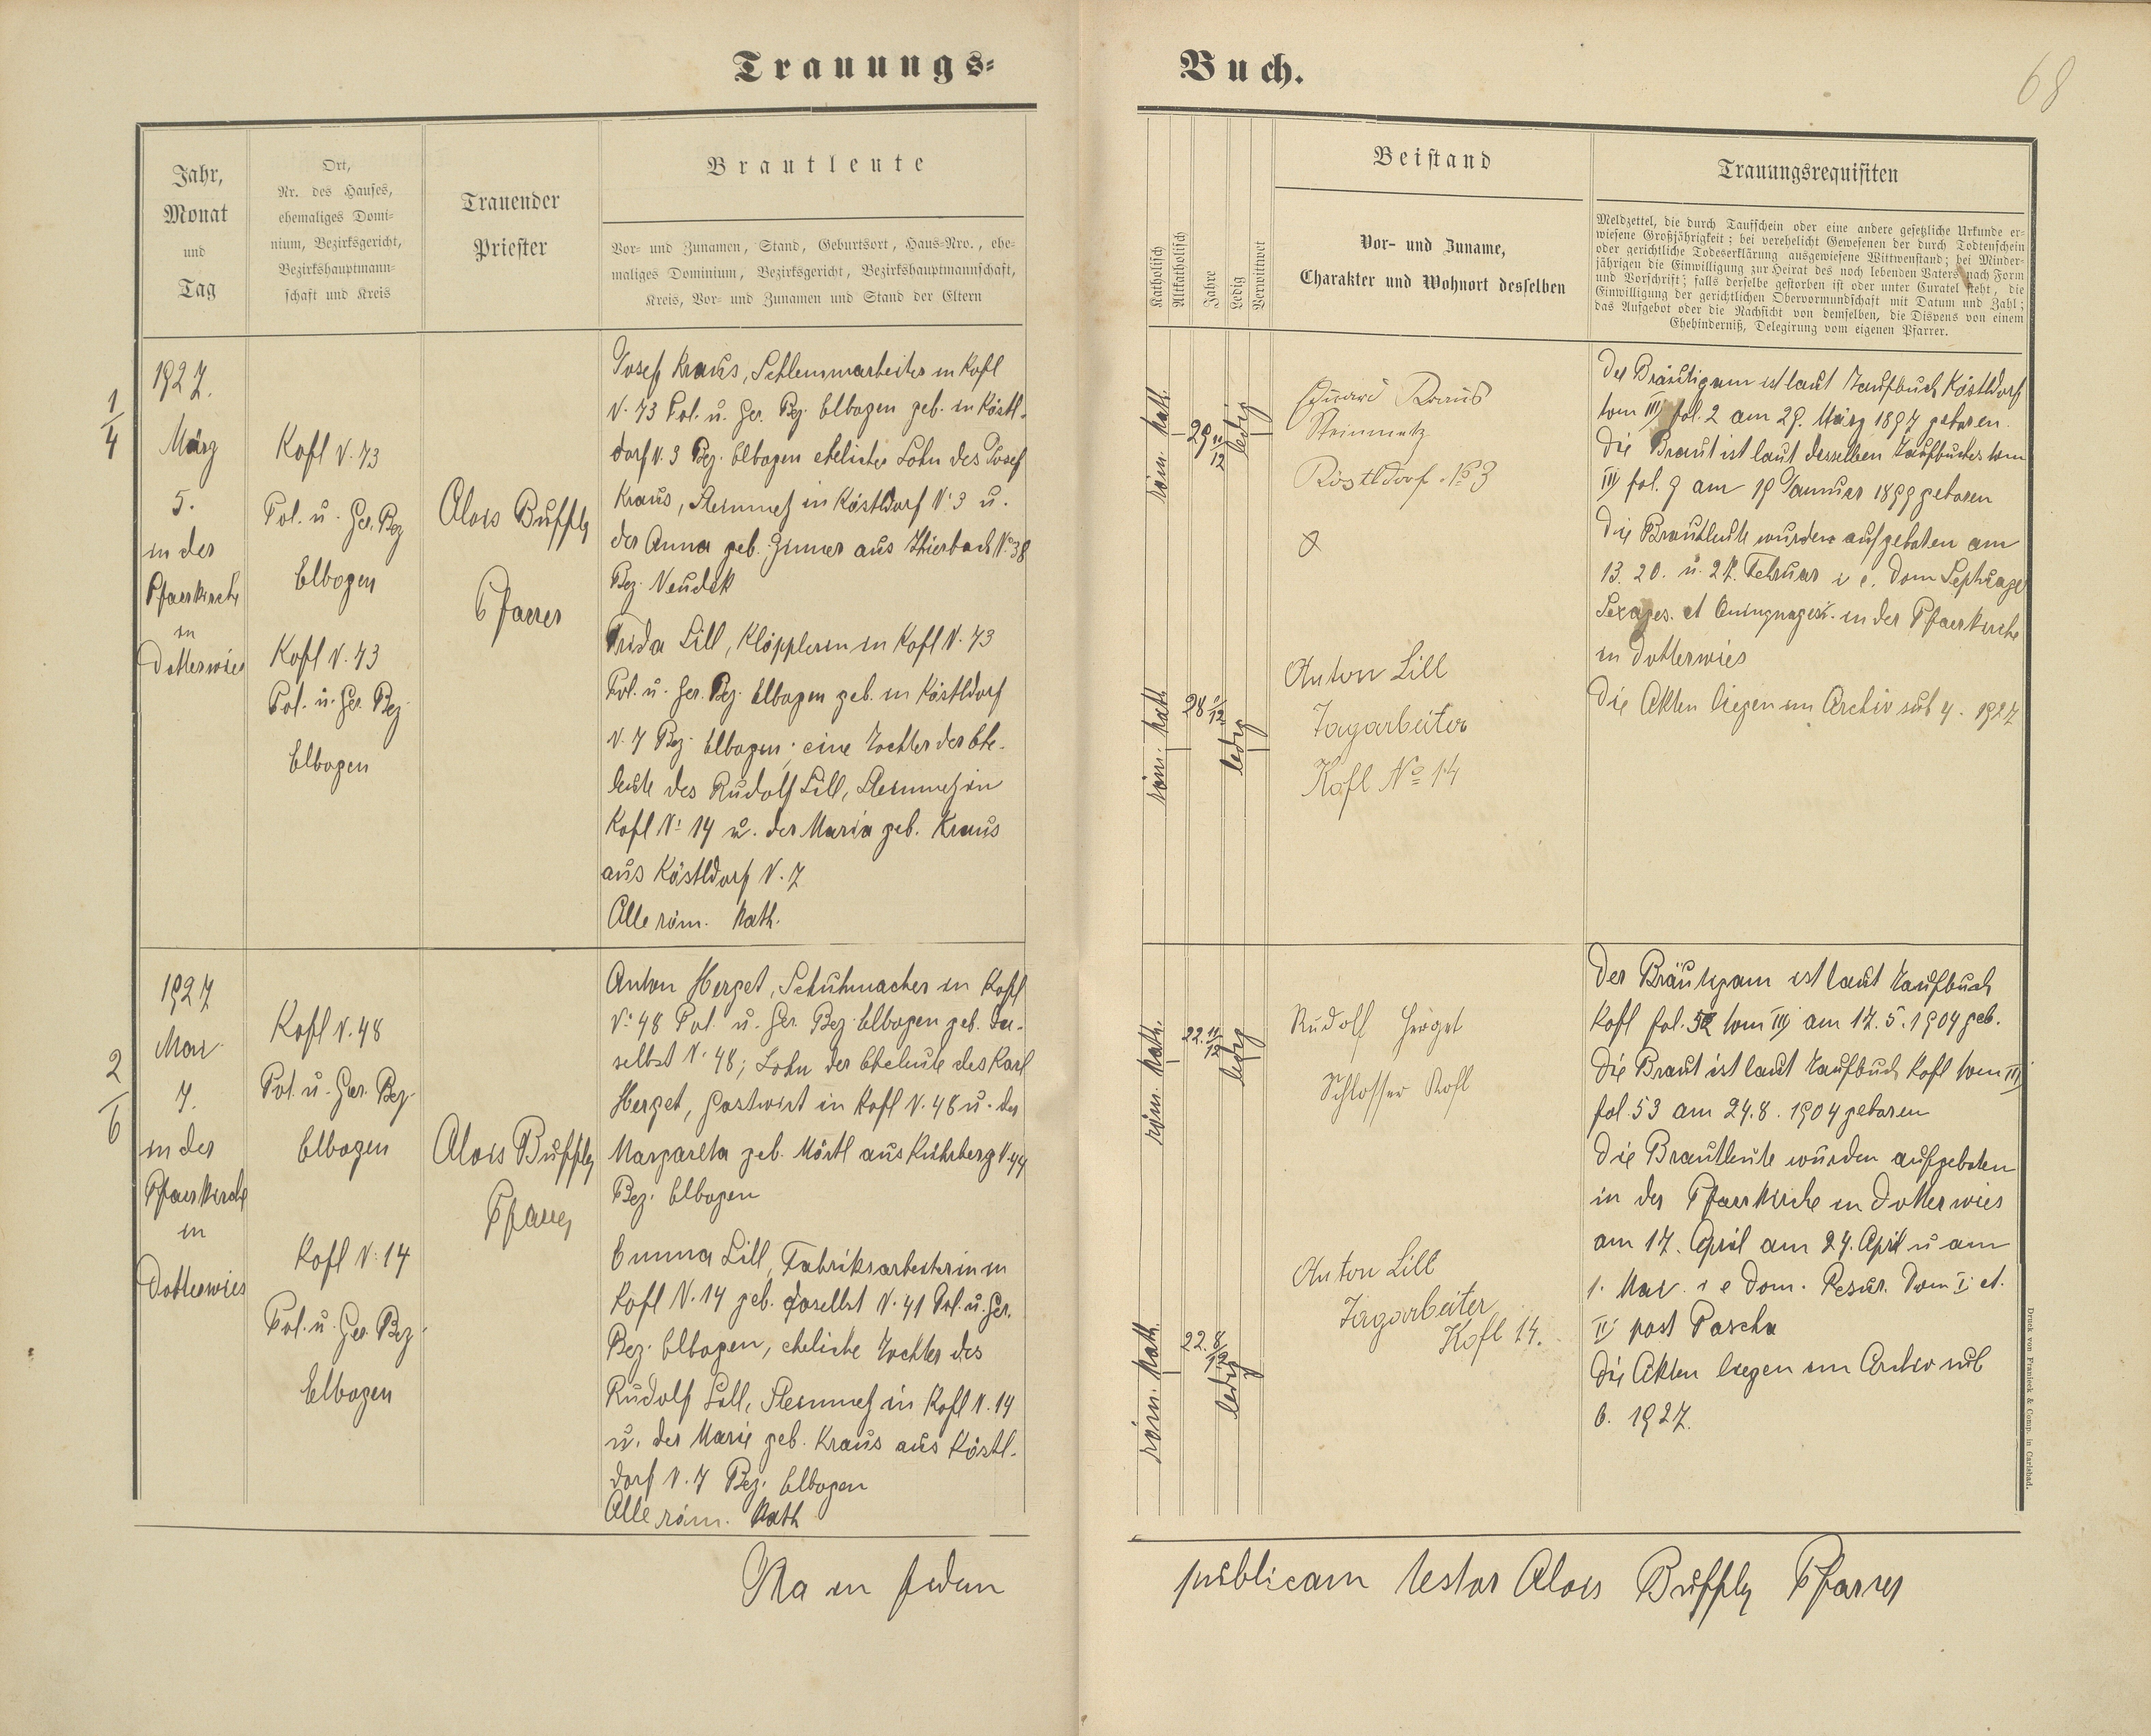 Trauungs-
Buch.
68
Jahr,
Monat
und
Tag
Ort,
Nr. des Hauses,
ehemaliges Domi-
nium, Bezirksgericht,
Bezirkshauptmann-
schaft und Kreis
Trauender
Priester
Brautleute
Vor- und Zunamen, Stand, Geburtsort, Haus-Nro., ehe-
maliges Dominium, Bezirksgericht, Bezirkshauptmannschaft,
Kreis, Vor- und Zunamen und Stand der Eltern
Katholisch
Altkatholisch
Jahre
Ledig
Verwittwet
Beistand
Vor- und Zuname,
Charakter und Wohnort desselben
Trauungsrequisiten
Meldzettel, die durch Taufschein oder eine andere gesetzliche Urkunde er-
wiesene Großjährigkeit; bei verehelicht Gewesenen der durch Todtenschein
oder gerichtliche Todeserklärung ausgewiesene Wittwenstand; bei Minder-
jährigen die Einwilligung zur Heirat des noch lebenden Vaters nach Form
und Vorschrift; falls derselbe gestorben ist oder unter Curatel steht, die
Einwilligung der gerichtlichen Obervormundschaft mit Datum und Zahl;
das Aufgebot oder die Nachsicht von demselben, die Dispens von einem
Ehehinderniß, Delegirung vom eigenen Pfarrer.
1/4
1927.
März
5.
in der
Pfarrkirche
in
Dotterwies
Kofl N. 73
Pol. u. Ger. Bez
Elbogen
Kofl N. 73
Pol. u. Ger. Bez.
Elbogen
Alois Buffly
Pfarrer
Josef Kraus, Schlemmarbeiter in Kofl
N. 73 Pol. u. Ger. Bez. Elbogen geb. in Köstl-
dorf N. 3 Bez. Elbogen ehelicher Sohn des Josef
Kraus, Steinmetz in Köstldorf N. 3 u.
der Anna geb. Zinner aus Thierbach No 38
Bez. Neudek
Frida Lill, Klöpplerin in Kofl N. 73
Pol. u. Ger. Bez. Elbogen geb. in Köstldorf
N. 7 Bez. Elbogen; eine Tochter der Ehe-
leute des Rudolf Lill, Steinmetz in
Kofl N: 14 u. der Maria geb. Kraus
aus Köstldorf N. 7
Alle röm. kath.
röm. kath.
29 11/12
ledig
röm. kath
28 1/12
ledig
Eduard Kraus
Steinmetz
Köstldorf No 3
Anton Lill
Tagarbeiter
Kofl No 14
Der Bräutigam ist laut Taufbuch Köstldorf
tom III fol. 2 am 29. März 1897 geboren.
Die Braut ist laut desselben Taufbuches tom
III fol. 9 am 19 Januar 1899 geboren
Die Brautleute wurden aufgeboten am
13. 20. u. 27. Februar i e. Dom Septuages
Sexages. et Quinquages. in der Pfarrkirche
in Dotterwies
Die Akten liegen im Archiv sub 4. 1927
2/6
1927
Mai
7.
in der
Pfarrkirche
in
Dotterwies
Kofl N. 48
Pol. u. Ger. Bez.
Elbogen
Kofl N: 14
Pol. u. Ger. Bez.
Elbogen
Alois Buffly
Pfarrer
Anton Herget, Schuhmacher in Kofl
N: 48 Pol. u. Ger. Bez. Elbogen geb. da-
selbst N. 48; Sohn der Eheleute des Karl
Herget, Gastwirt in Kofl N. 48 u. der
Margareta geb. Mörtl aus Kührberg N. 44
Bez. Elbogen
Emma Lill, Fabriksarbeiterin in
Kofl N. 14 geb. daselbst N. 41 Pol. u. Ger.
Bez. Elbogen, eheliche Tochter des
Rudolf Lill, Steinmetz in Kofl N. 14
u. der Marie geb. Kraus aus Köstl-
dorf N. 7 Bez. Elbogen
Alle röm. kath
röm. kath.
22. 11/12
ledig
röm. kath.
22. 8/12
ledig
Rudolf Herget
Schlosser Kofl
Anton Lill
Tagarbeiter
Kofl 14.
Der Bräutigam ist laut Taufbuch
Kofl fol. 52 tom III am 17. 5. 1904 geb.
Die Braut ist laut Taufbuch Kofl tom III
fol. 53 am 24. 8. 1904 geboren
Die Brautleute wurden aufgeboten
in der Pfarrkirche in Dotterwies
am 17. April am 24. April u am
1. Mai i e Dom. Resur. Dom I. et.
II post Pascha
Die Akten liegen im Archiv sub
6. 1927.
Druck von Franieck & Comp. in Carlsbad.
Ita in fidem
publicam testor Alois Buffly Pfarrer